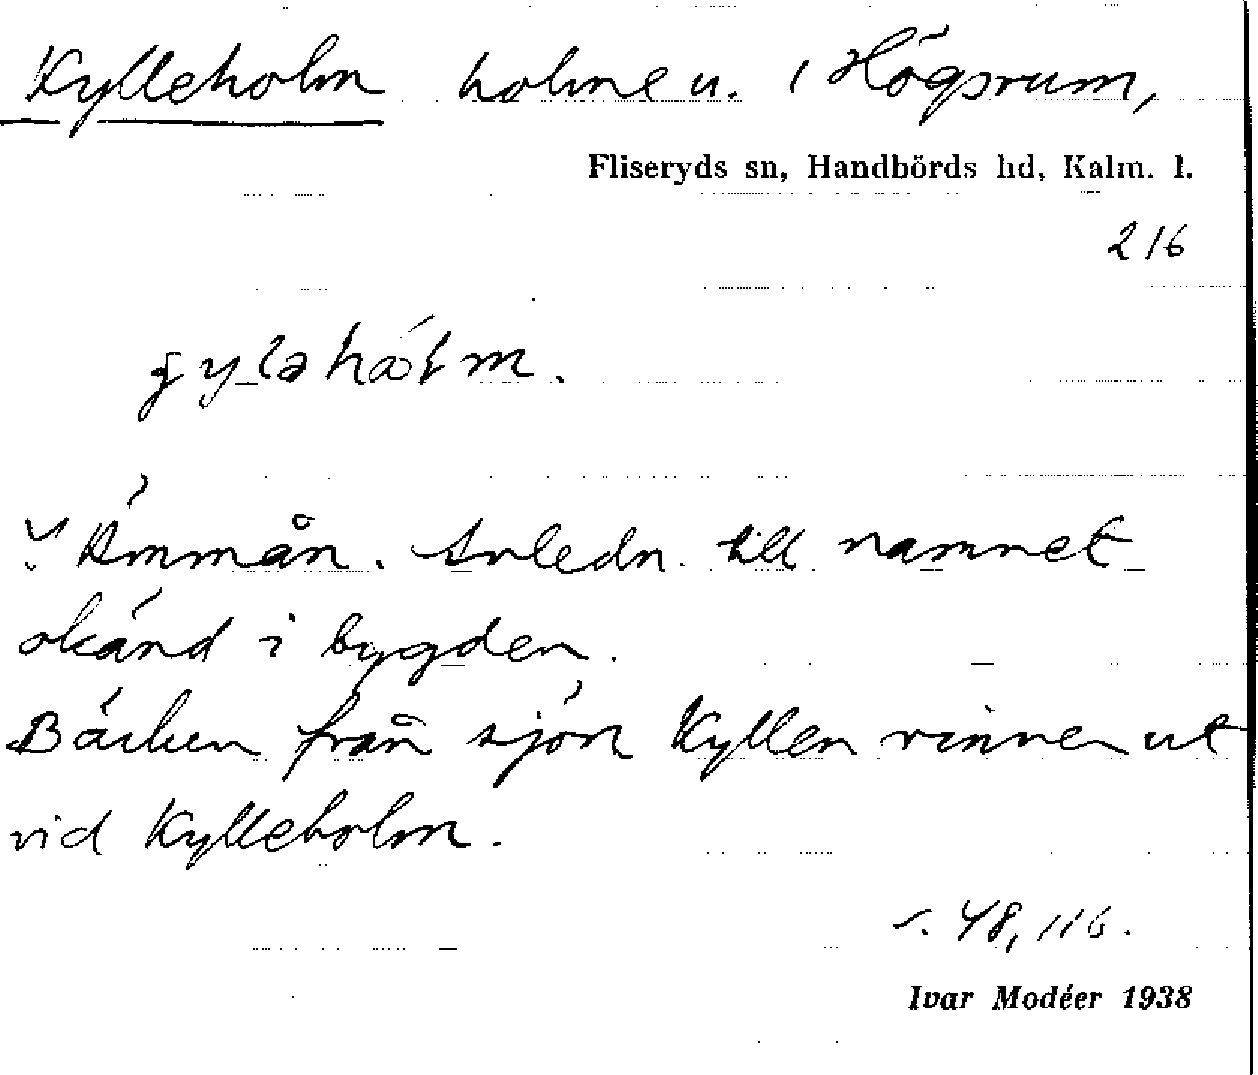 Kylleholm holme u. Högsrum,
Fliseryds sn, Handbörds hd, Kalm. l.
216
i Emmån. Anledn. till namnet
okänd i bygden.
Bäcken från sjön Kyllen rinner ut
vid Kylleholm.
s. 48, 116.
Ivar Modéer 1938